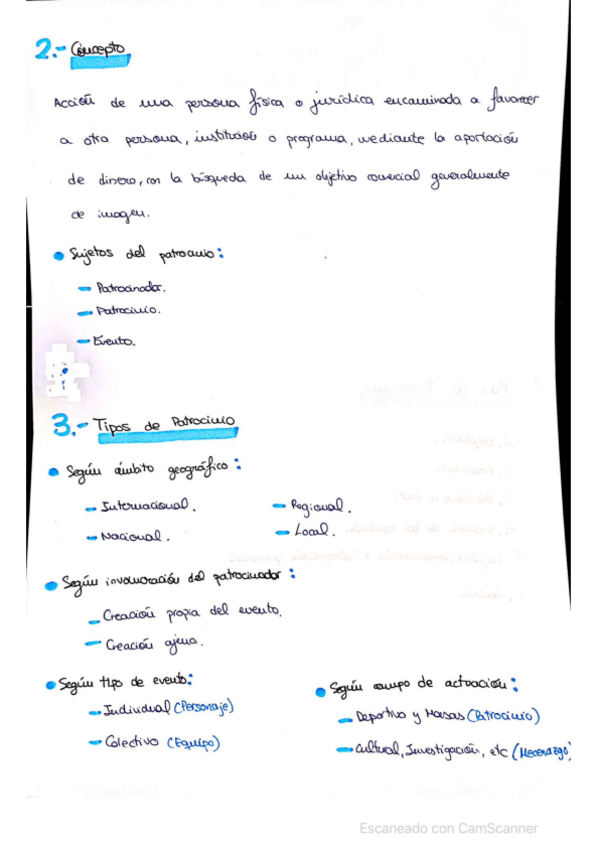 2.- Concepto
Acción de una persona física o jurídica encaminada a favorecer
a otra persona, institución o programa, mediante la aportación
de dinero, con la búsqueda de un objetivo comercial generalmente
de imagen.
• Sujetos del patrocinio:
- Patrocinador.
- Patrocinio.
- Evento.
3.- Tipos de Patrocinio
• Según ámbito geográfico:
- Internacional.
- Regional.
- Nacional.
- Local.
• Según involucración del patrocinador:
- Creación propia del evento.
- Creación ajena.
• Según tipo de evento:
- Individual (Personaje)
- Colectivo (Equipo)
• Según campo de actuación:
- Deportivo y Masas (Patrocinio)
- Cultural, Investigación, etc (Mecenazgo)
Escaneado con CamScanner